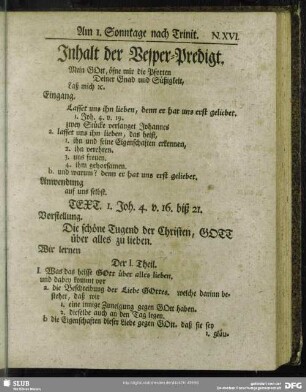 Am 1. Sonntage nach Trinit. N. XVI.
Inhalt der Vesper-Predigt.
Mein GOtt, öfne mir die Pforten
Deiner Gnad und Süßigkeit,
Laß mich ꝛc.
Eingang.
Lasset uns ihn lieben, denn er hat uns erst geliebet.
1. Joh. 4. v. 19.
Zwey Stücke verlanget Johannes
a. lasset uns ihn lieben, das heist,
1. ihn und seine Eigenschaften erkennen,
2. ihn verehren,
3. uns freuen,
4. ihm gehorsamen.
b. und warum? denn er hat uns erst geliebet.
Anwendung
auf uns selbst.
TEXT. 1. Joh. 4. v. 16. biß 21.
Vorstellung.
Die schöne Tugend der Christen, GOTT
über alles zu lieben.
Wir lernen
Der I. Theil.
I. Was das heisse GOtt über alles lieben,
und dabey kommt vor
a. die Beschreibung der Liebe GOttes, welche darinn be-
stehet, daß wir
1. eine innige Zuneigung gegen GOtt haben.
2. dieselbe auch an den Tag legen.
b. die Eigenschaften dieser Liebe gegen GOtt, daß sie sey
1. gläu-
SLUB
DFG